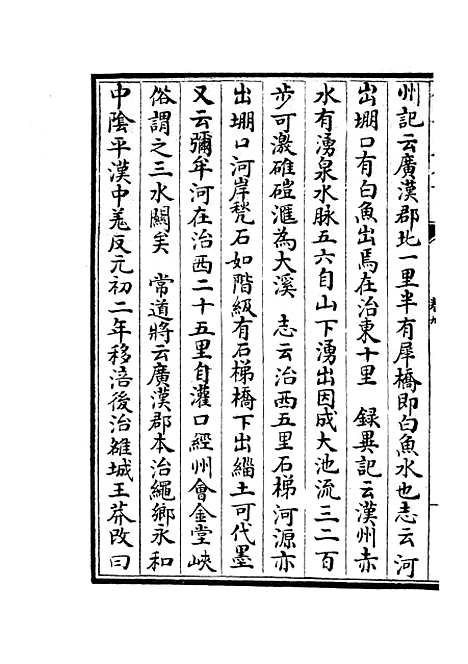 州記云廣漢郡北一里半有犀橋即白魚水也志云河
出堋口有白魚出焉在治東十里　録異記云漢州赤
水有湧泉水脉五六自山下湧出因成大池流三二百
步可激碓磑滙為大溪　志云治西五里石梯河源亦
出堋口河岸甃石如階級有石梯橋下出緇土可代墨
又云彌牟河在治西二十五里自灌口經州會金堂峽
俗謂之三水闗矣　常道將云廣漢郡本治繩鄉永和
中陰平漢中羗反元初二年移涪後治雒城王莽改曰
卷九